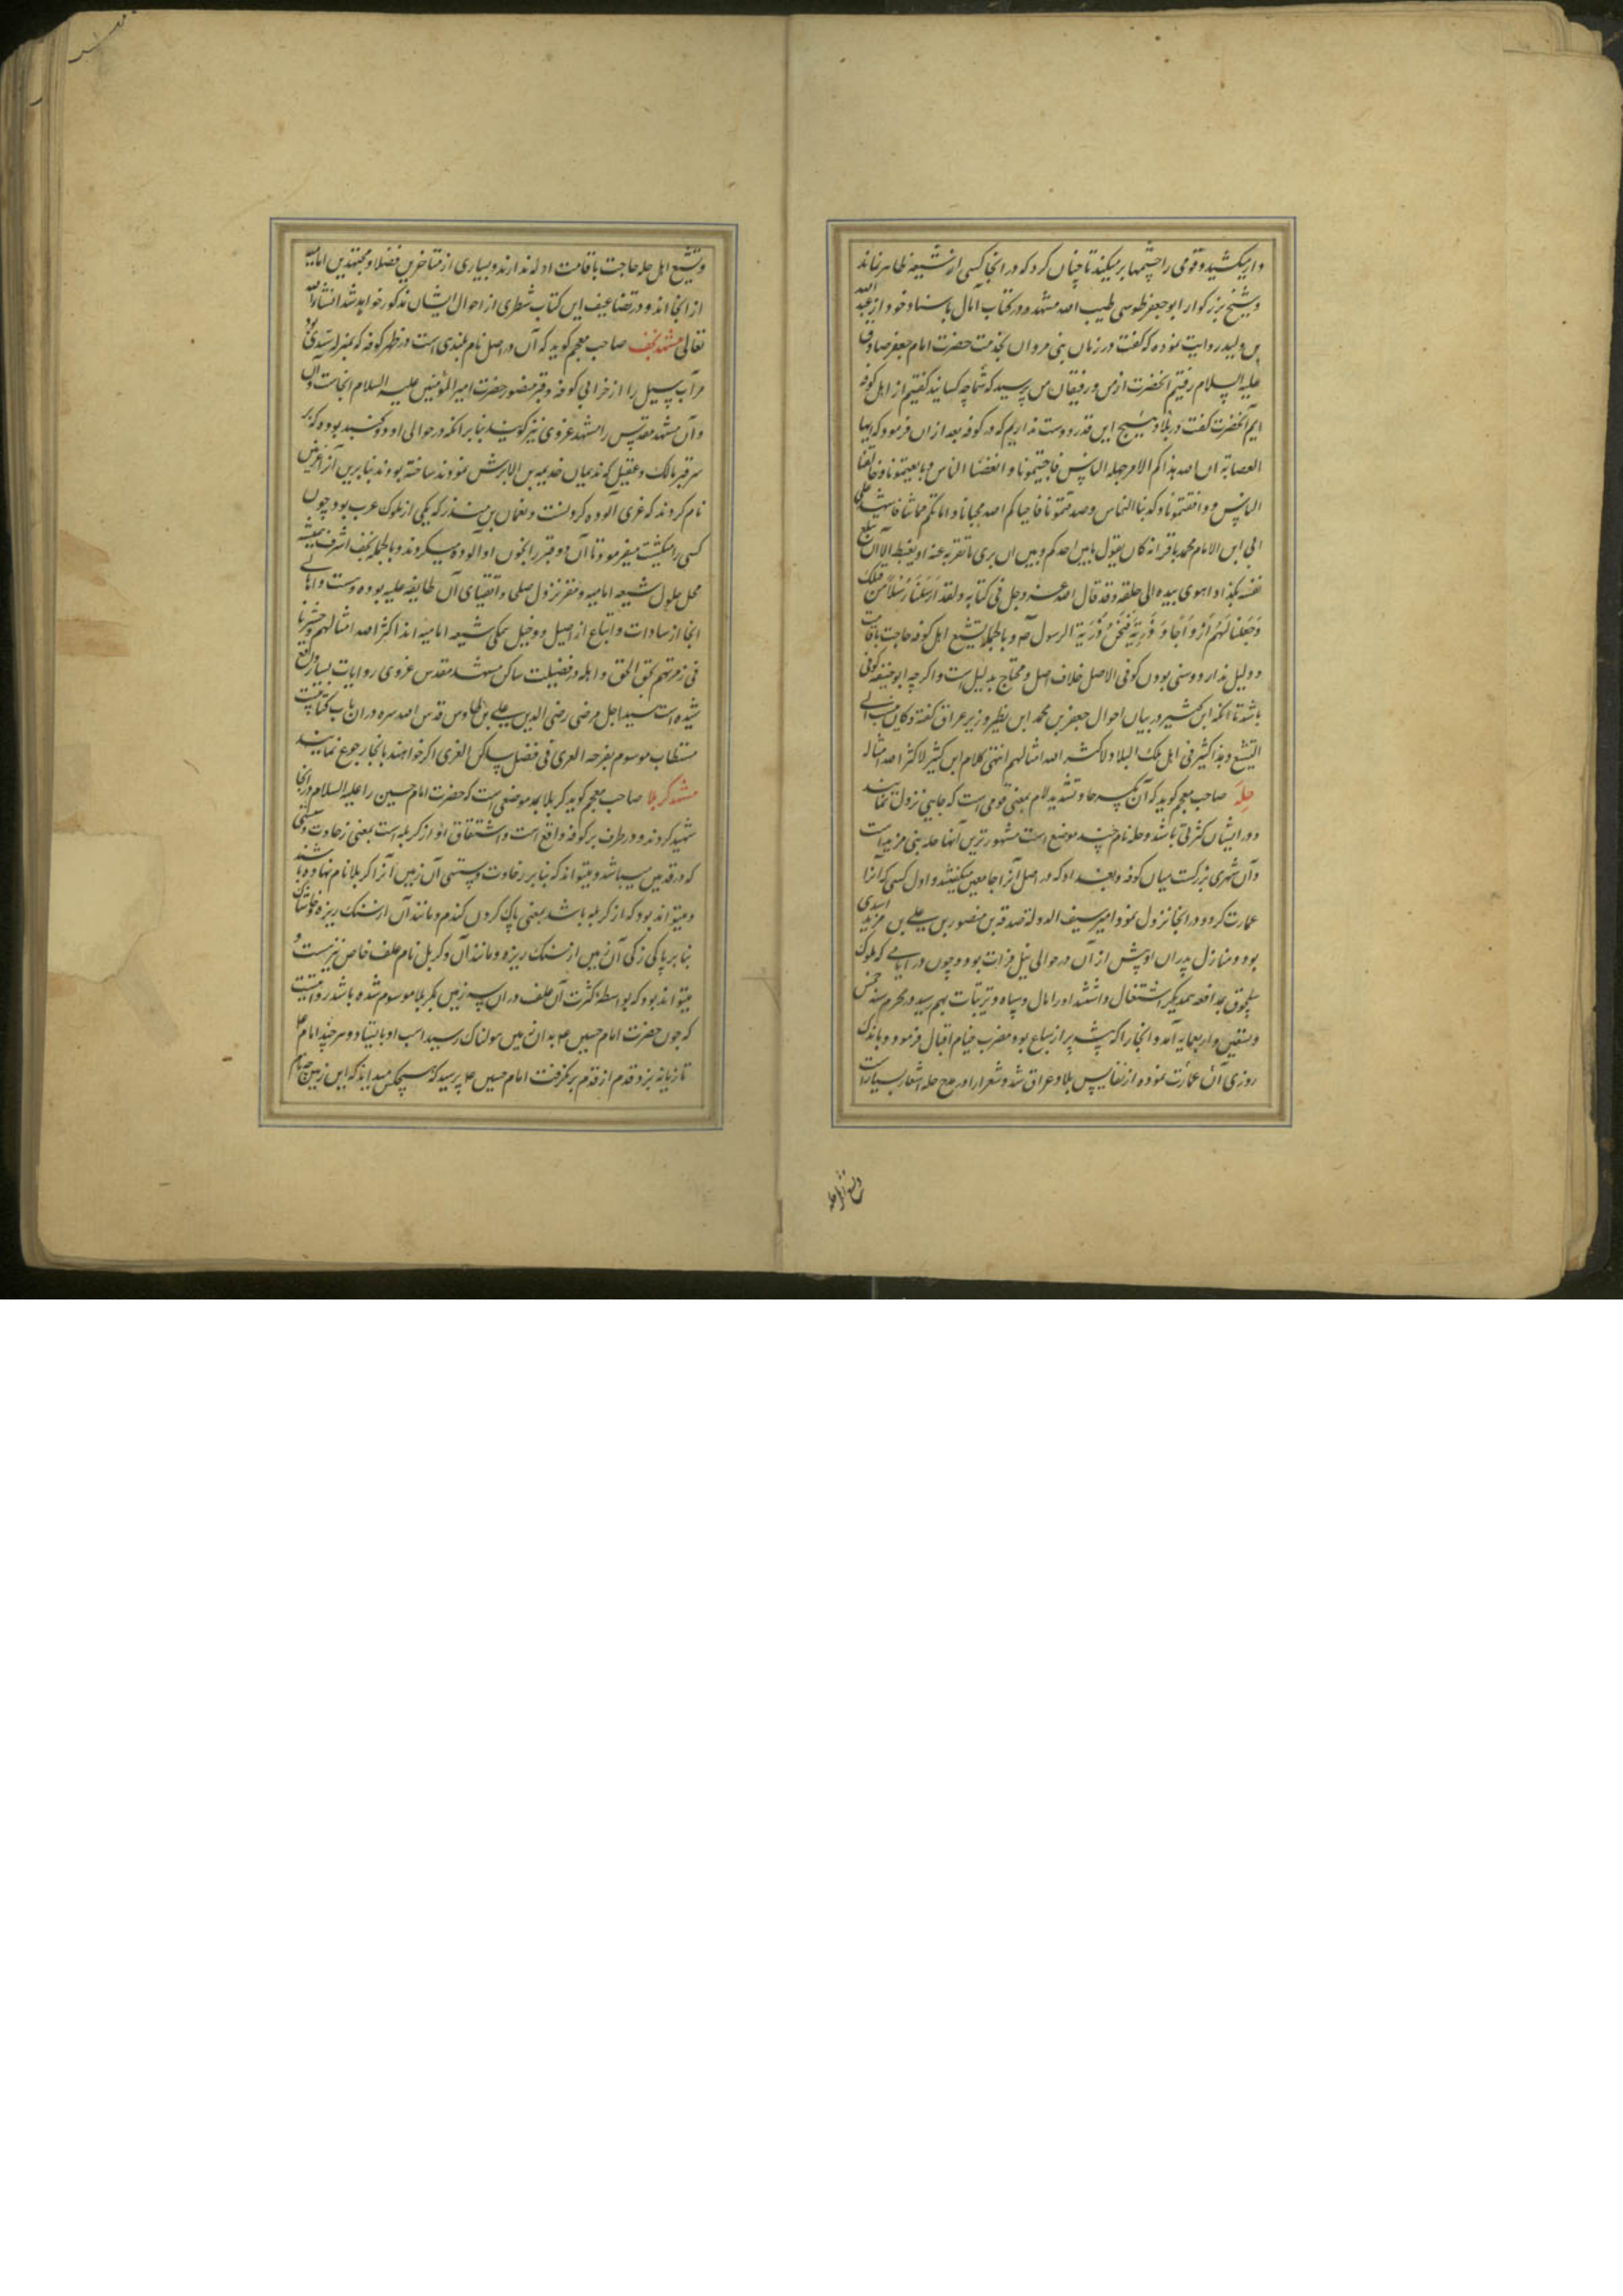 و ار میکشید و قومی را چشمها بر میکند تا چنان کرد که در انجا کسی از شیعه ظاهر نماند
و شیخ بزرگوار ابو جعفر طوسی طیب الله مشهده در کتاب آمال باسناد خود از عبد الله
بن ولید روایت نموده که گفت در زمان بنی مروان بخدمت حضرت امام جعفر صادق
علیه السلام رفتیم آنحضرت از من و رفیقان من پرسید که شما چه کسانید گفتیم از اهل کوفه
ایم آنحضرت گفت در بلاد هیچ این قدر دوست نداریم که در کوفه بعد از ان فرمود که ایها
العصابة ان الله هذاکم لامر جهله الناس فاجبتمونا و ابغضنا الناس و بایعتمونا و خالفنا
الناس و وافقتمونا و کذبنا الناس و صدقتمونا فاحیاکم الله محیانا و اماتکم مماتنا فاشهد علی
ابی ابن الامام محمد باقر انه کان یقول ما بین احدکم و بین ان یری ما تقر به عینه او یغتبط الا ان تبلغ
نفسه هکذا و اهوی بیده الی حلقه و قد قال الله عز و جل فی کتابه و لقد ارسلنا رسلا من قبلک
و جعلنا لهم ازواجا و ذریة فنحن ذریة الرسول ص و بالجمله تشیع اهل کوفه حاجت باقامت
دلیل ندارد و سنی بودن کوفی الاصل خلاف اصل و محتاج بدلیل است و اگر چه ابو حنیفه کوفی
باشد تا آنکه ابن کثیر در بیان احوال جعفر بن محمد ابن فطیر وزیر عراق گفته و کان ینسب الی
التشیع و هذا کثیر فی اهل تلک البلاد لا کثر الله امثالهم انتهی کلام ابن کثیر لا کثر الله امثاله
حله صاحب معجم گوید که آن بکسر حا و تشدید لام بمعنی قومی است که جایی نزول نمایند
و در ایشان کثرتی باشد و حله نام چند موضع است مشهورترین آنها حله بنی مزید است
و آن شهری بزرگست میان کوفه و بغداد که در اصل آنرا جامعین میگفتند و اول کسی که آنرا
عمارت کرد و در انجا نزول نمود امیر سیف الدوله صدقه بن منصور بن علی بن مزید اسدی
بود و منازل پدران او پیش از آن در حوالی نیل فرات بود و چون در ایامی که ملوک
سلجوق بمدافعه همدیگر اشتغال داشتند او را مال و سپاه و ترتیبات بهم رسید در محرم سنه خمس
و تسعین و اربعمایه آمد و انجا را که بیشه پر از سباع بود مضرب خیام اقبال فرمود و باندک
روزی آن عمارت نموده از نفایس بلاد عراق شد و شعرا را در مدح حله اشعار بسیار است
و تشیع اهل حله
و تشیع اهل حله حاجت باقامت ادله ندارند و بسیاری از متاخرین فضلا و مجتهدین امامیه
از انجا اند و در تضاعیف این کتاب شطری از احوال ایشان مذکور خواهد شد انشاء الله
تعالی مشهد نجف صاحب معجم گوید که آن در اصل نام بلندی است در ظهر کوفه که بمنزله سدی بود
مر آب سیل را از خرابی کوفه و قبر منور حضرت امیر المؤمنین علیه السلام انجاست
و آن مشهد مقدس را مشهد غروی نیز گویند بنا بر انکه در حوالی او دو گنبد بوده که بر
سر قبر مالک و عقیل که ندیمان خدیمه بن الابرش بودند ساخته بودند بنابرین آنرا غریین
نام کردند که غری آلوده کردنست و نعمان بن منذر که یکی از ملوک عرب بود چون
کسی را میکشت میفرمود تا آن دو قبر را بخون او آلوده میکردند و بالجمله نجف اشرف همیشه
محل حلول شیعه امامیه و مقر نزول صلحا و اتقیای آن طایفه علیه بوده و هست و اهالی
انجا از سادات و اتباع از اصیل و دخیل همگی شیعه امامیه اند اکثر الله امثالهم و حشرنا
فی زمرتهم بحق الحق و اهله در فضیلت ساکن مشهد مقدس غروی روایات بسیار واقع
شده است سید اجل مرضی رضی الدین علی بن طاوس قدس الله سره در ان باب کتابیست
مستطاب موسوم بفرحه الغری فی فضل ساکن الغری اگر خواهند بانجا رجوع نمایند
مشهد کربلا صاحب معجم گوید کربلا بمد موضعی است که حضرت امام حسین را علیه السلام در انجا
شهید کردند و در طرف بر کوفه واقع است و اشتقاق او از کربله است بمعنی رخاوت و سستی
که در قدمین میباشد و میتواند که بنا بر رخاوت و سستی آن زمین آنرا کربلا نام نهاده باشند
و میتواند بود که از کربله باشد بمعنی پاک کردن گندم و مانند آن از سنک ریزه و خاشاک
بنا بر پاکی زکی آن زمین از سنک ریزه و مانند آن و کربل نام علف خاص نیز هست و
میتواند بود که بواسطه کثرت آن علف در ان سرزمین بکربلا موسوم شده باشد روایتست
که چون حضرت امام حسین ع به ان زمین هولناک رسید اسب او بایستاد و هر چند امام ع
تازیانه بزد قدم از قدم بر نگرفت امام حسین ع پرسید که هیچکس میداند که این زمین چه نام